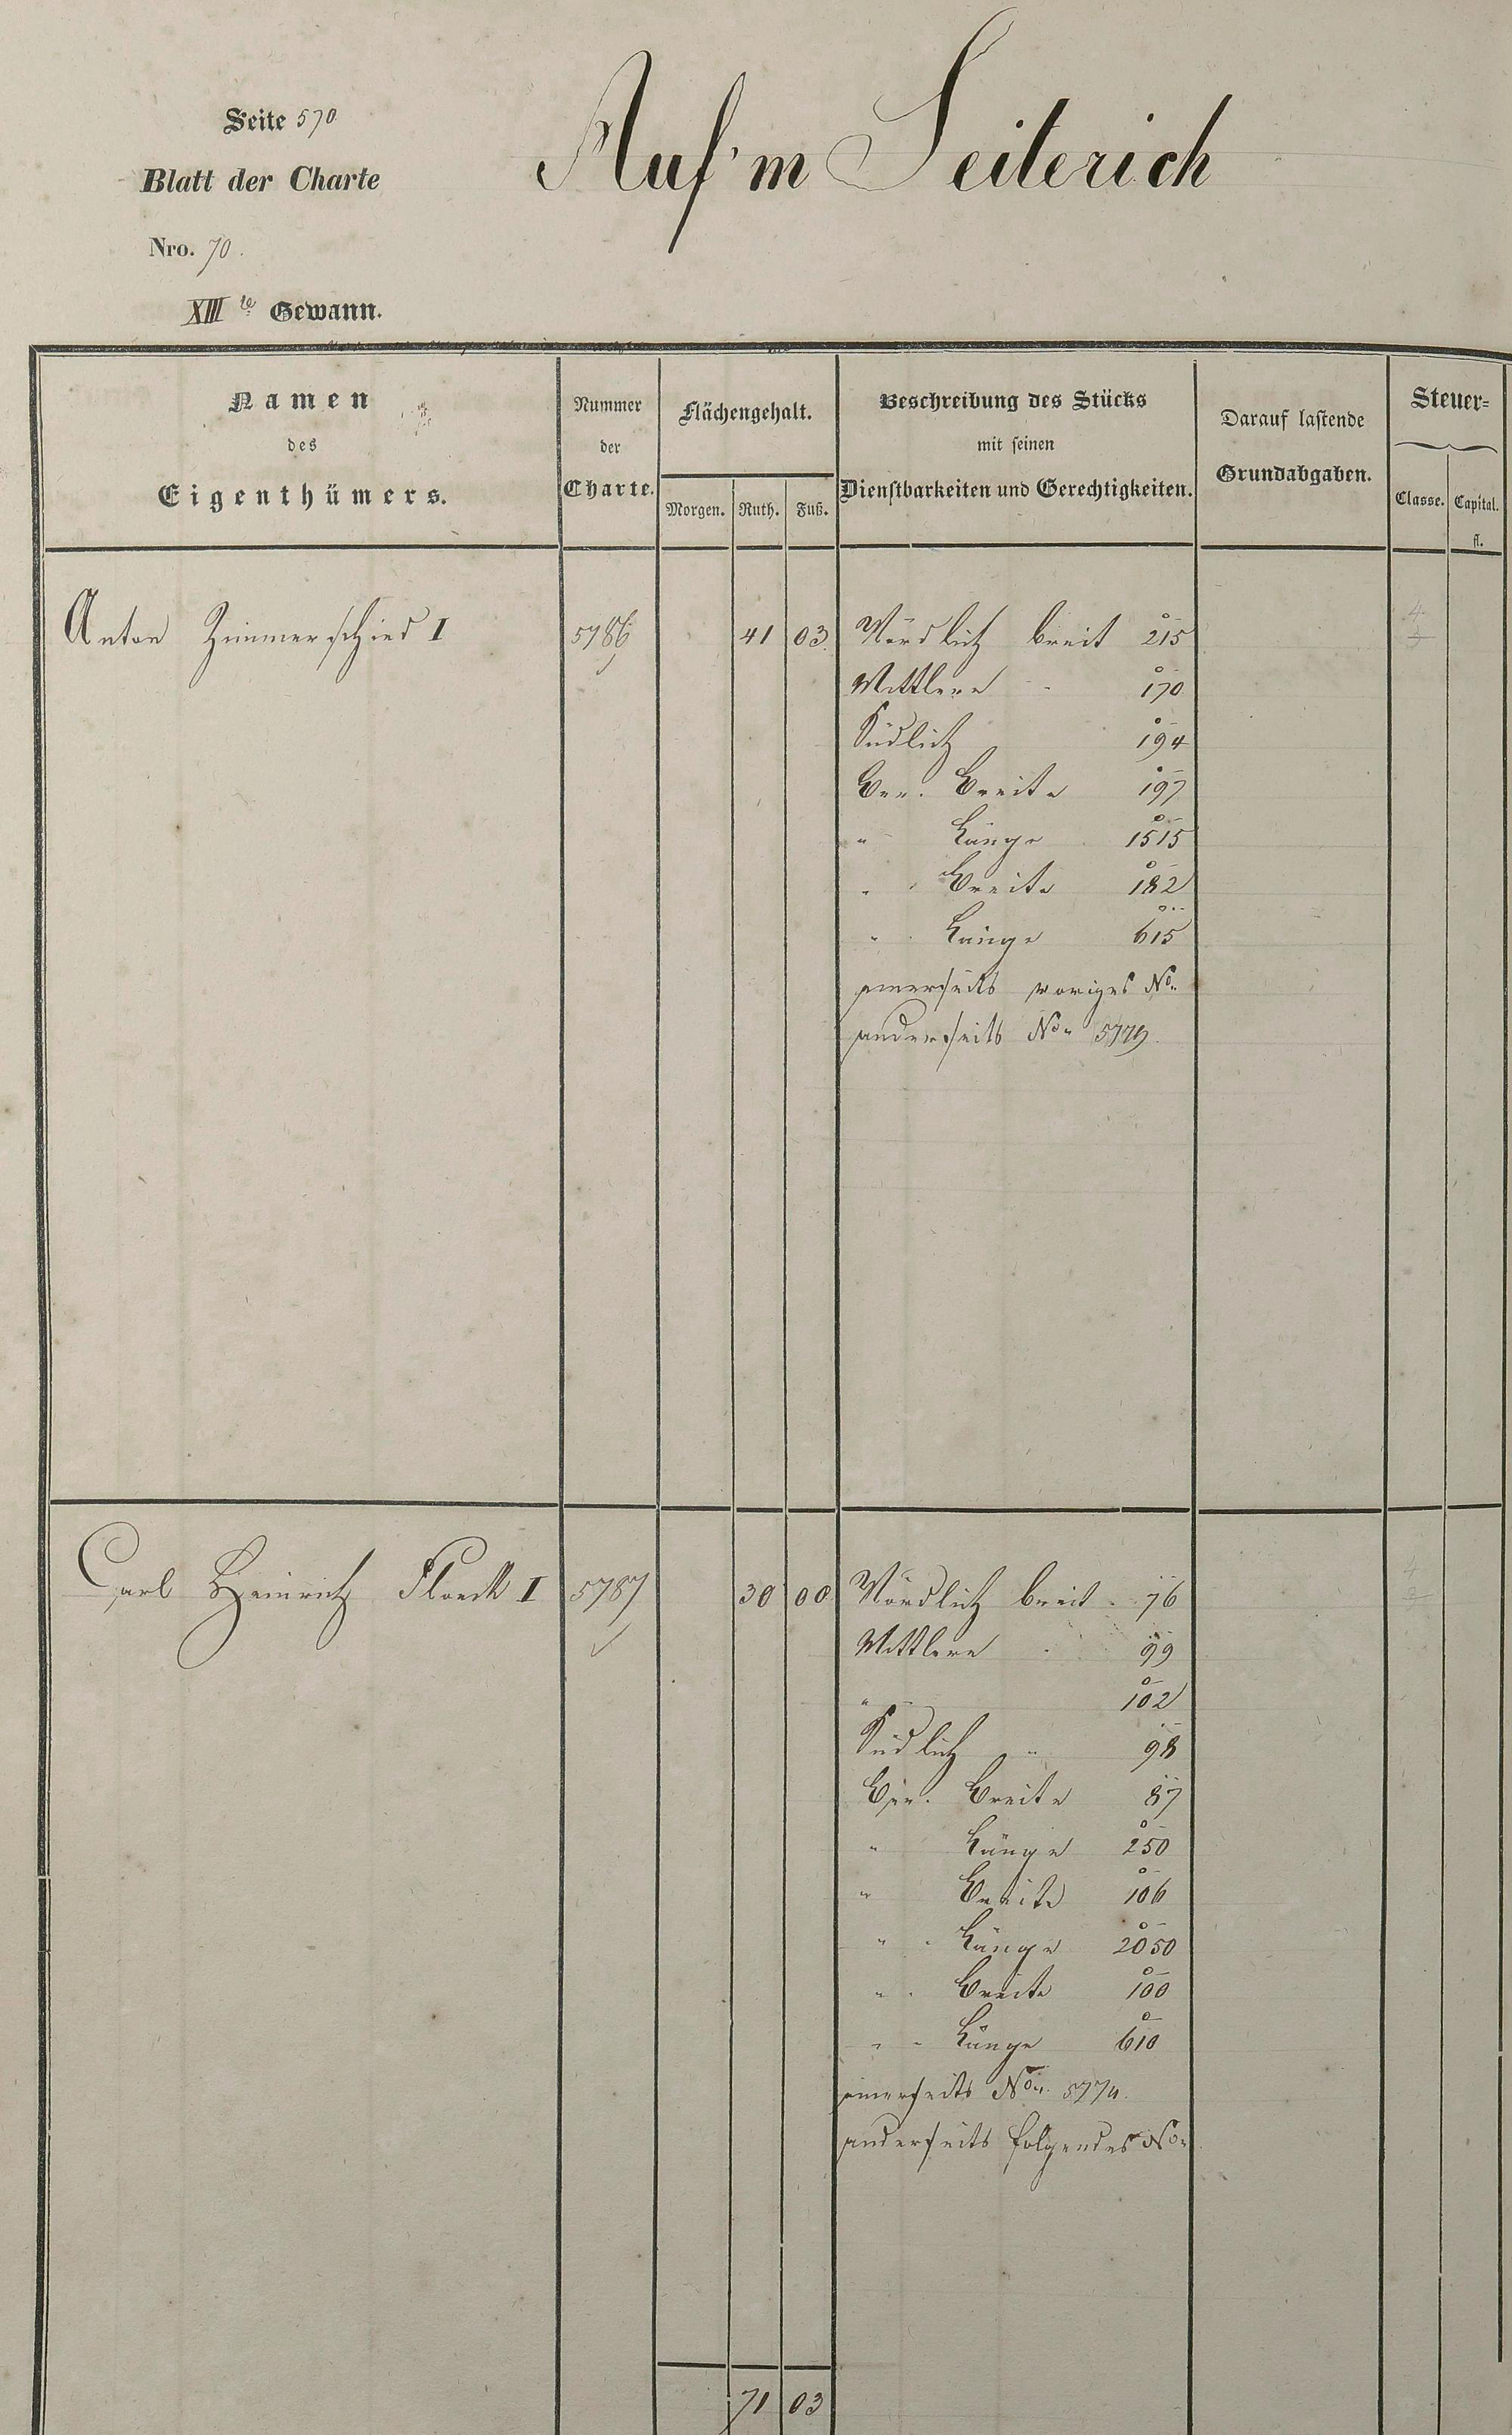 Seite 570
Blatt der Charte
Nro. 70.
XIII te Gewann.
Auf'm Seiterich
Namen
des
Eigenthümers.
Nummer
der
Charte.
Flächengehalt.
Morgen. Ruth. Fuß.
Beschreibung des Stücks
mit seinen
Dienstbarkeiten und Gerechtigkeiten.
Darauf lastende
Grundabgaben.
Steuer=
Classe. Capital.
fl.
Anton Zimmerschied I 5786 41 03 Nördlich breit 215
Mittlere " 170
Südlich 194
Ber. Breite 197
" Länge 1515
" Breite 182
" Länge 615
einerseits voriges No.
anderseits No. 5779.
Carl Heinrich Floeck I 5787 30 00 Nördlich breit 76
Mittlere " 99
" 102
Südlich " 98
Ber. Breite 87
" Länge 250
" Breite 106
" Länge 2050
" Breite 100
" Länge 610
einerseits No.
anderseits folgendes No.
71 03